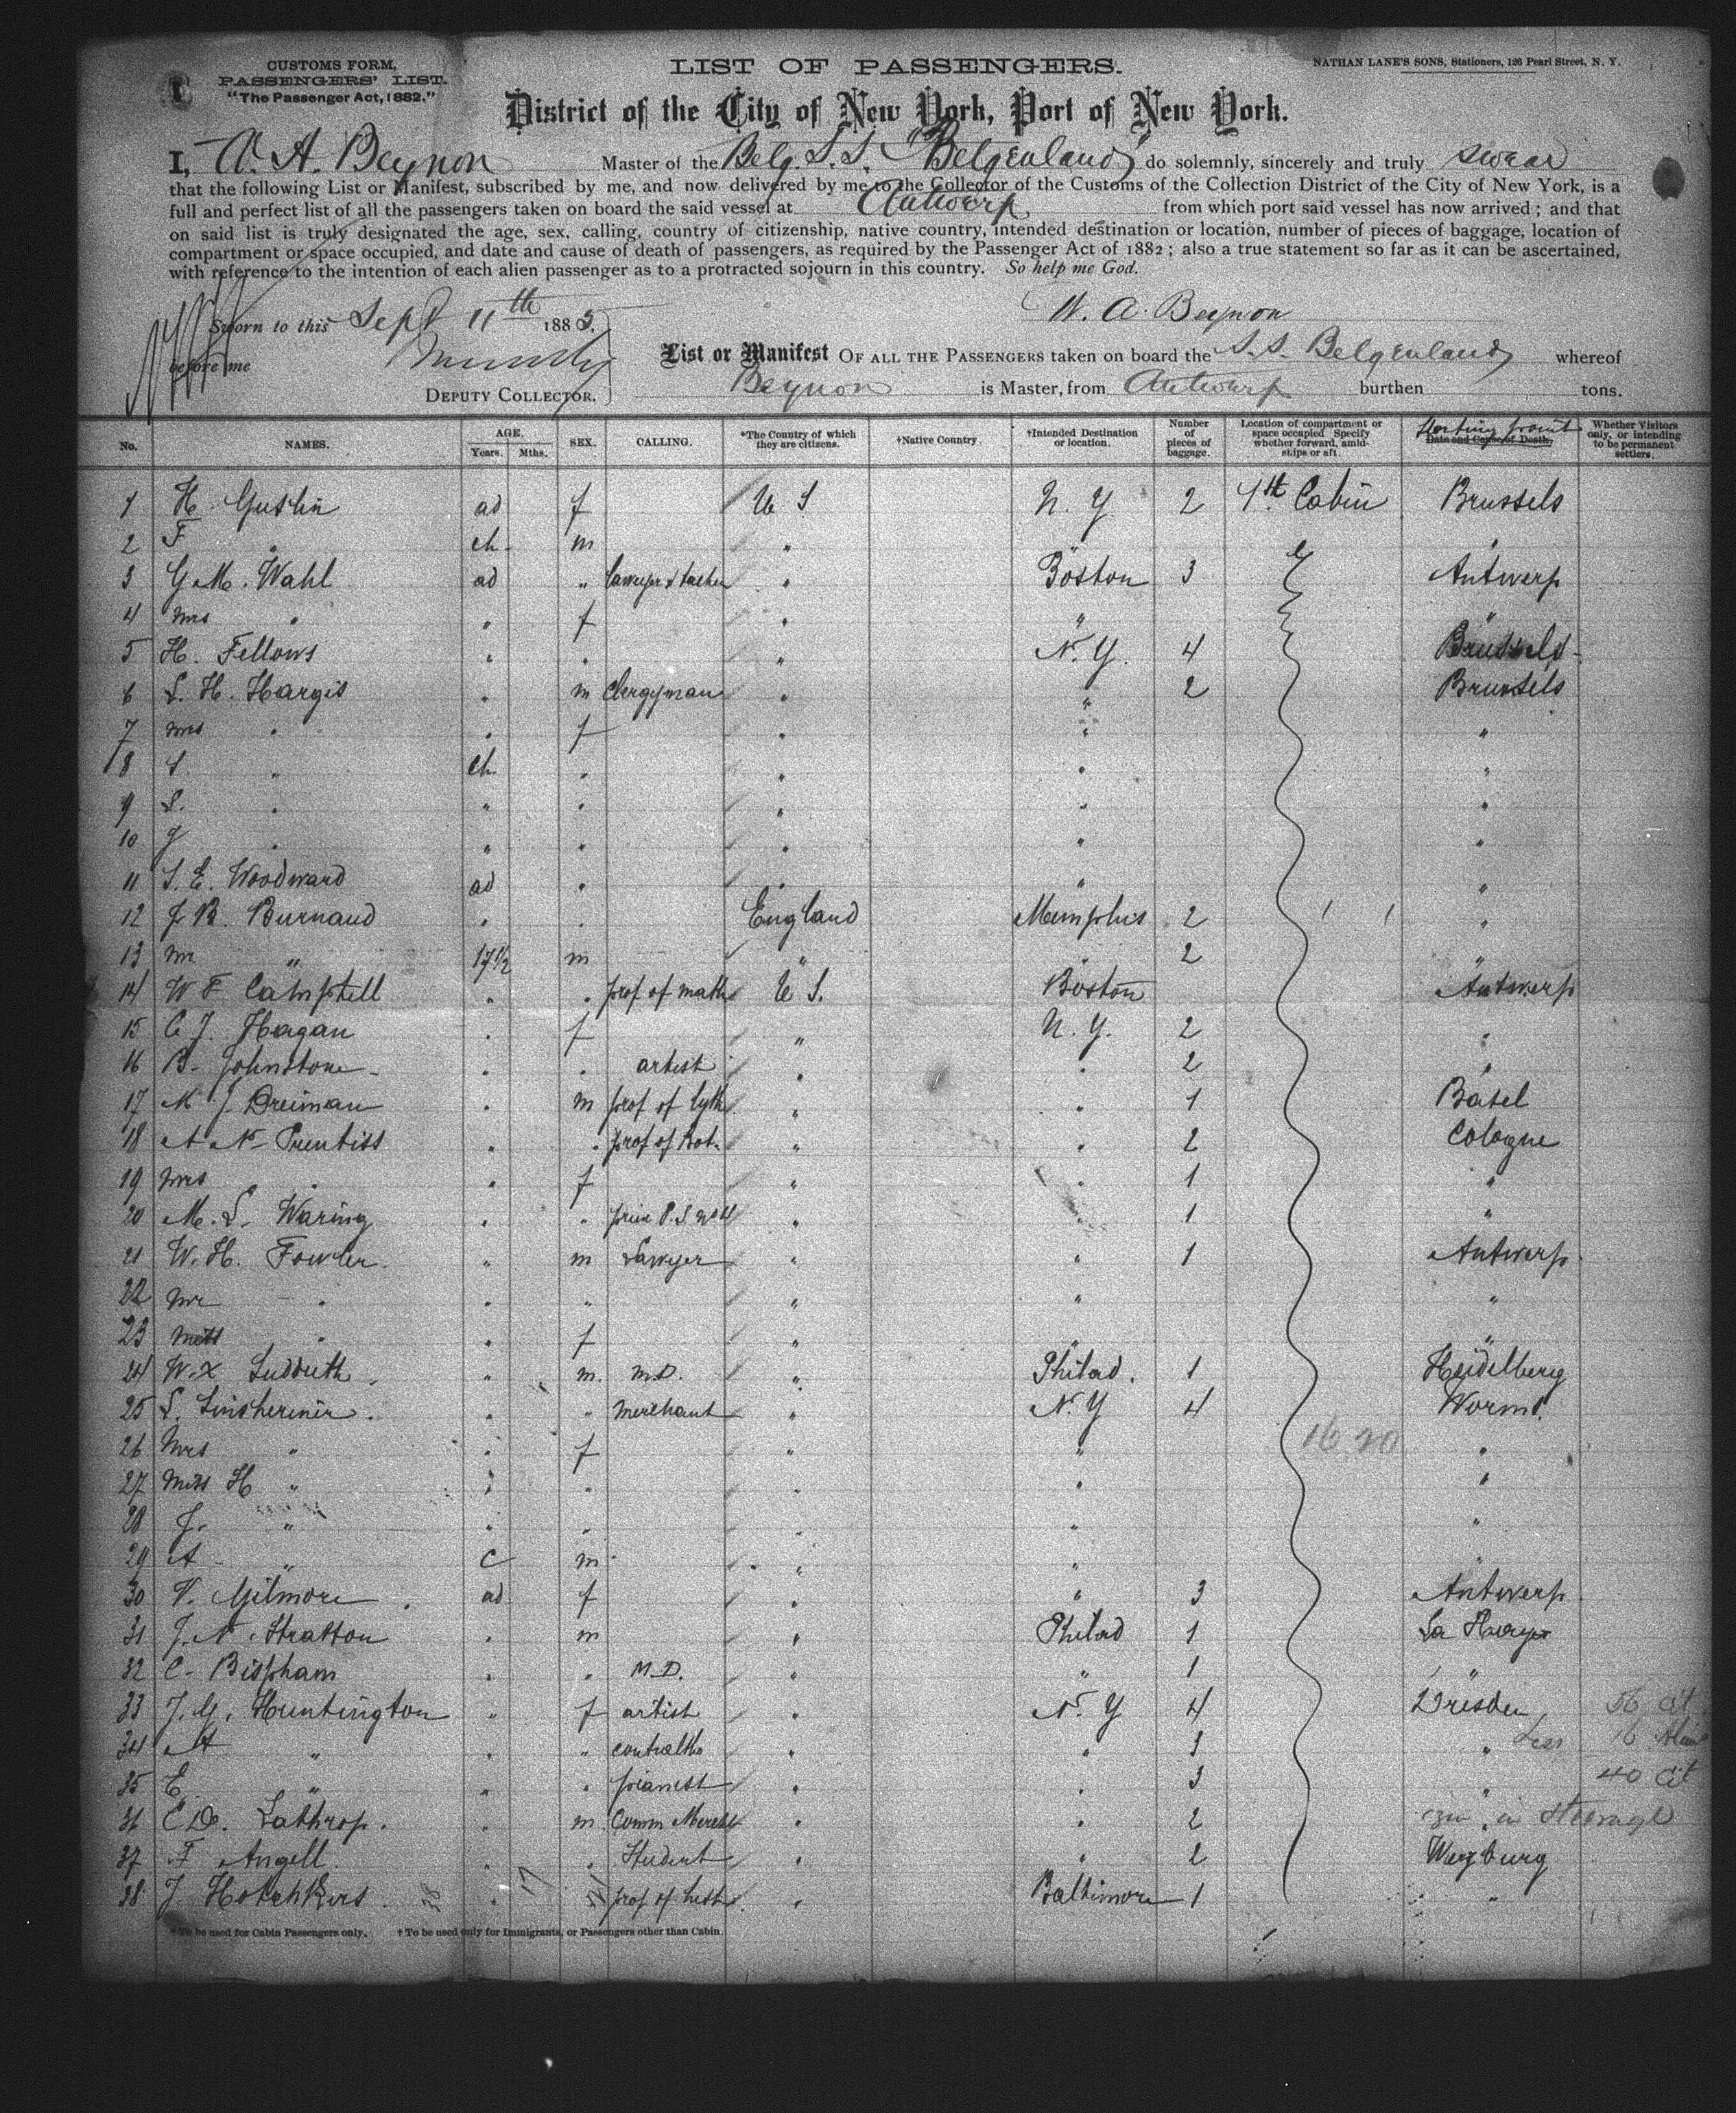 CUSTOMS FORM,
PASSENGERS' LIST.
"The Passenger Act, 1882."
LIST OF PASSENGERS.
NATHAN LANE'S SONS, Stationers, 126 Pearl Street, N. Y.
District of the City of New York, Port of New York.
I, W. A. Beynon Master of the Belg. S.S. "Belgenland" do solemnly, sincerely and truly swear
that the following List or Manifest, subscribed by me, and now delivered by me to the Collector of the Customs of the Collection District of the City of New York, is a
full and perfect list of all the passengers taken on board the said vessel at Antwerp from which port said vessel has now arrived; and that
on said list is truly designated the age, sex, calling, country of citizenship, native country, intended destination or location, number of pieces of baggage, location of
compartment or space occupied, and date and cause of death of passengers, as required by the Passenger Act of 1882; also a true statement so far as it can be ascertained,
with reference to the intention of each alien passenger as to a protracted sojourn in this country. So help me God.
Sworn to this Sept 11th 1885.
W. A. Beynon
before me
List or Manifest OF ALL THE PASSENGERS taken on board the S.S. Belgenland whereof
DEPUTY COLLECTOR.
Beynon is Master, from Antwerp burthen tons.
No. NAMES. AGE. Years. Mths. SEX. CALLING. *The Country of which they are citizens. †Native Country. †Intended Destination or location. Number of pieces of baggage. Location of compartment or space occupied Specify whether forward, amidships or aft. Starting point Date and Cause of Death. Whether Visitors only, or intending to be permanent settlers.
1 H. Guslin ad f U S N. Y. 2 1st Cabin Brussels
2 F " ch. m " " "
3 G. M. Wahl ad " " Boston 3 Antwerp
4 Mrs " " f " " "
5 H. Fellows " " " N. Y. 4 Brussels
6 L. H. Hargis " m Clergyman " " 2 Brussels
7 Mrs " " f " " "
8 S. " ch. " " " "
9 L. " " " " " "
10 J " " " " " "
11 S. E. Woodward ad " " " "
12 J B. Burnaud " " England Memphis 2 "
13 Mr " 17½ m " " 2 "
14 W F Campbell " " prof of math U S. Boston Antwerp
15 C J. Hagan " f " N. Y. 2 "
16 B. Johnstone " " artist " " 2 "
17 M J Dreiman " m prof of " " 1 Basel
18 A N Prentiss " " prof of bot. " " 2 Cologne
19 Mrs " " f " " 1 "
20 M. L. Waring " " prin P. S. " " 1 "
21 W. H. Fowler " m Lawyer " " 1 Antwerp
22 Mr " " " " " "
23 Miss " " f " " "
24 W. X. Sudduth " m. M.D. " Philad. 1 Heidelberg
25 L. Sinsheimer " " Merchant " N. Y 4 Worms.
26 Mrs " " f " " 16 20 "
27 Miss H " " " " " "
28 J. " " " " " "
29 A " c m " " "
30 V. Gilmore ad f " " 3 Antwerp
31 J. N. Stratton " m " Philad 1 La Haye
32 C. Bispham " " M.D. " " 1 "
33 J. G. Huntington " f artist " N. Y 4 Dresden 56 cit
34 A " " " contralto " " 3 " Less 16
35 E. " " " pianist " " 3 " 40 cit
36 E D. Lathrop. " m Comm Mercht " " 2 in Steerage
37 F Angell " " Student " " 2
38 J Hotchkiss " " " Baltimore 1 "
* To be used for Cabin Passengers only. † To be used only for Immigrants, or Passengers other than Cabin